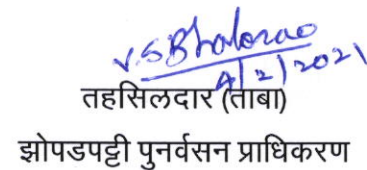 V.S Bhalerao
4/2/2021
तहसिलदार (ताबा)
झोपडपट्टी पुनर्वसन प्राधिकरण